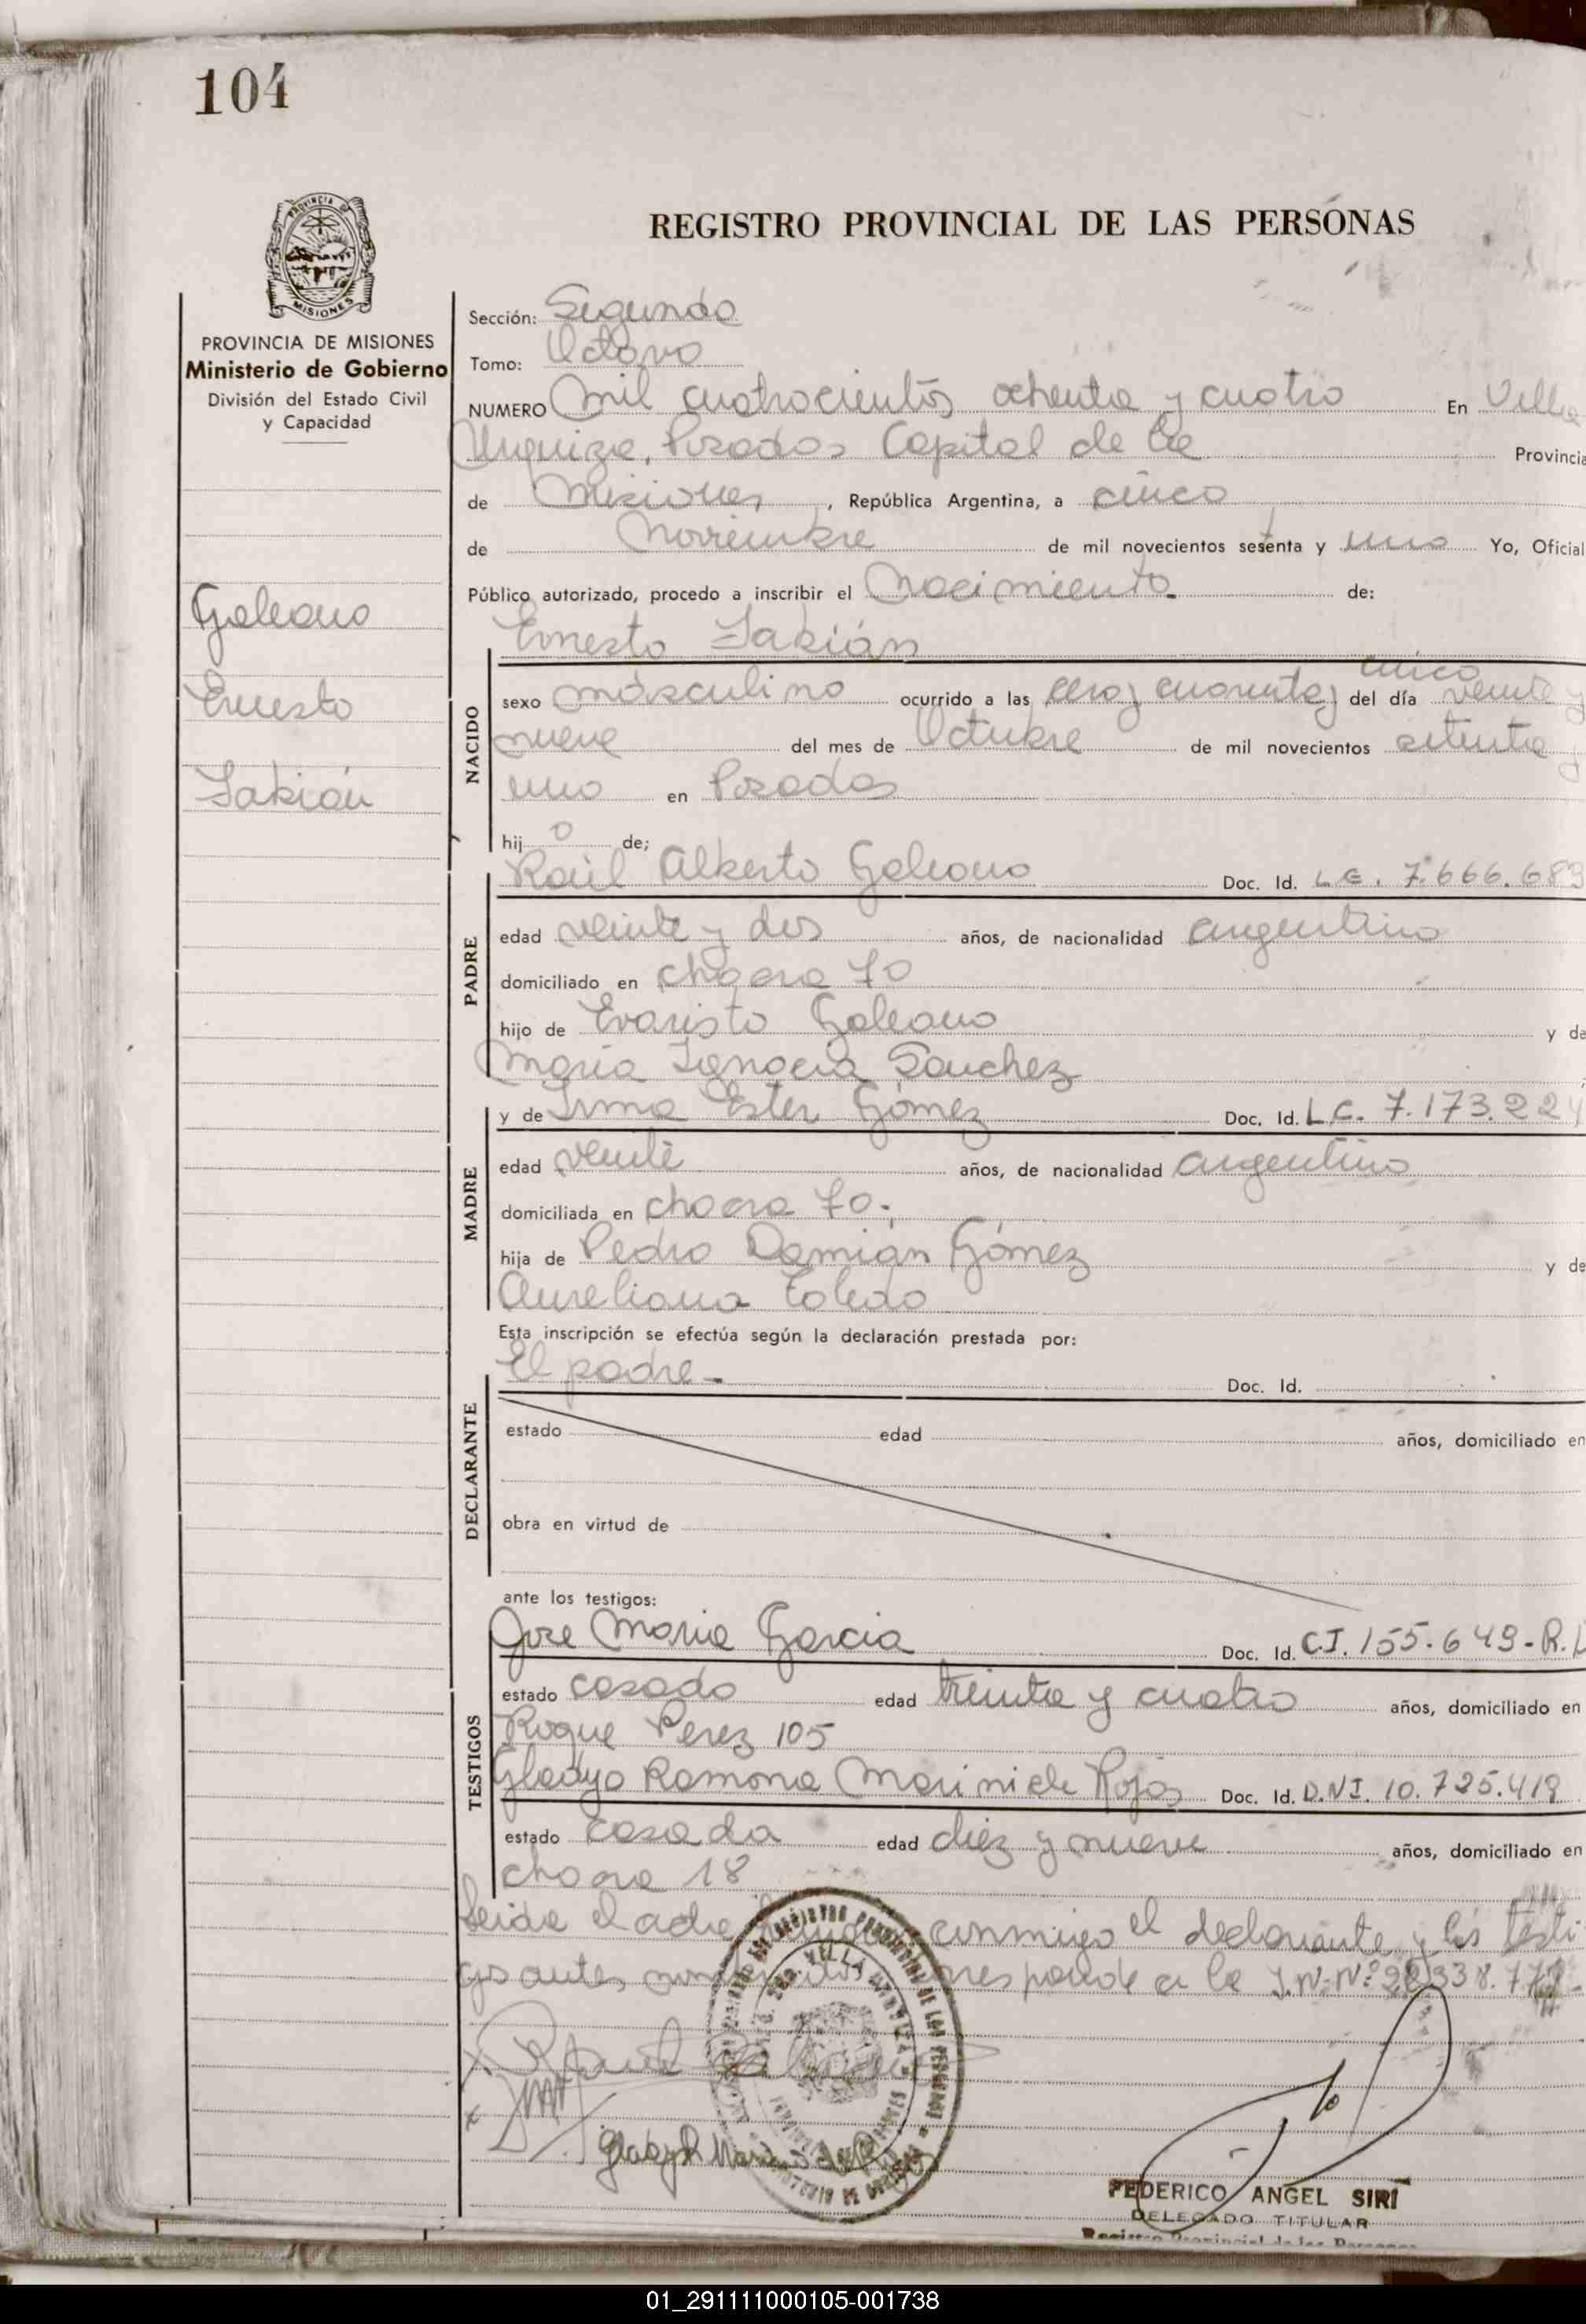 104
REGISTRO PROVINCIAL DE LAS PERSONAS
PROVINCIA DE MISIONES
Ministerio de Gobierno
División del Estado Civil
y Capacidad
Galeano
Ernesto
Fabián
Sección: Segunda
Tomo: Octavo
NUMERO Mil cuatrocientos ochenta y cuatro En Villa
Urquiza, Posadas Capital de la Provincia
de Misiones, República Argentina, a cinco
de Noviembre de mil novecientos sesenta y uno Yo, Oficial
Público autorizado, procedo a inscribir el Nacimiento de:
NACIDO
Ernesto Fabián
cinco
sexo masculino ocurrido a las cero, cuarenta, del día veinte y
nueve del mes de Octubre de mil novecientos setenta y
uno en Posadas
hijo de;
PADRE
Raúl Alberto Galeano Doc. Id. L.E. 7.666.683
edad veinte y dos años, de nacionalidad argentino
domiciliado en chacra 70
hijo de Evaristo Galeano y de
María Ignacia Sanchez
MADRE
y de Irma Ester Gómez Doc. Id. L.C. 7.173.224
edad veinte años, de nacionalidad argentina
domiciliada en chacra 70.
hija de Pedro Damián Gómez y de
Aureliana Toledo
Esta inscripción se efectúa según la declaración prestada por:
DECLARANTE
El padre - Doc. Id.
estado edad años, domiciliado en
obra en virtud de
ante los testigos:
TESTIGOS
Jose Maria Garcia Doc. Id. C.I. 155.649-R.
estado casado edad treinta y cuatro años, domiciliado en
Roque Perez 105
Gladys Ramona Marini de Rojas Doc. Id. D.N.I. 10.725.419
estado casada edad diez y nueve años, domiciliado en
chacra 18
Leida el acta conmigo el declarante y los testi
gos antes corresponde a la I.N.Nº
FEDERICO ANGEL SIRI
DELEGADO TITULAR
Registro Provincial de las Personas
01_291111000105-001738